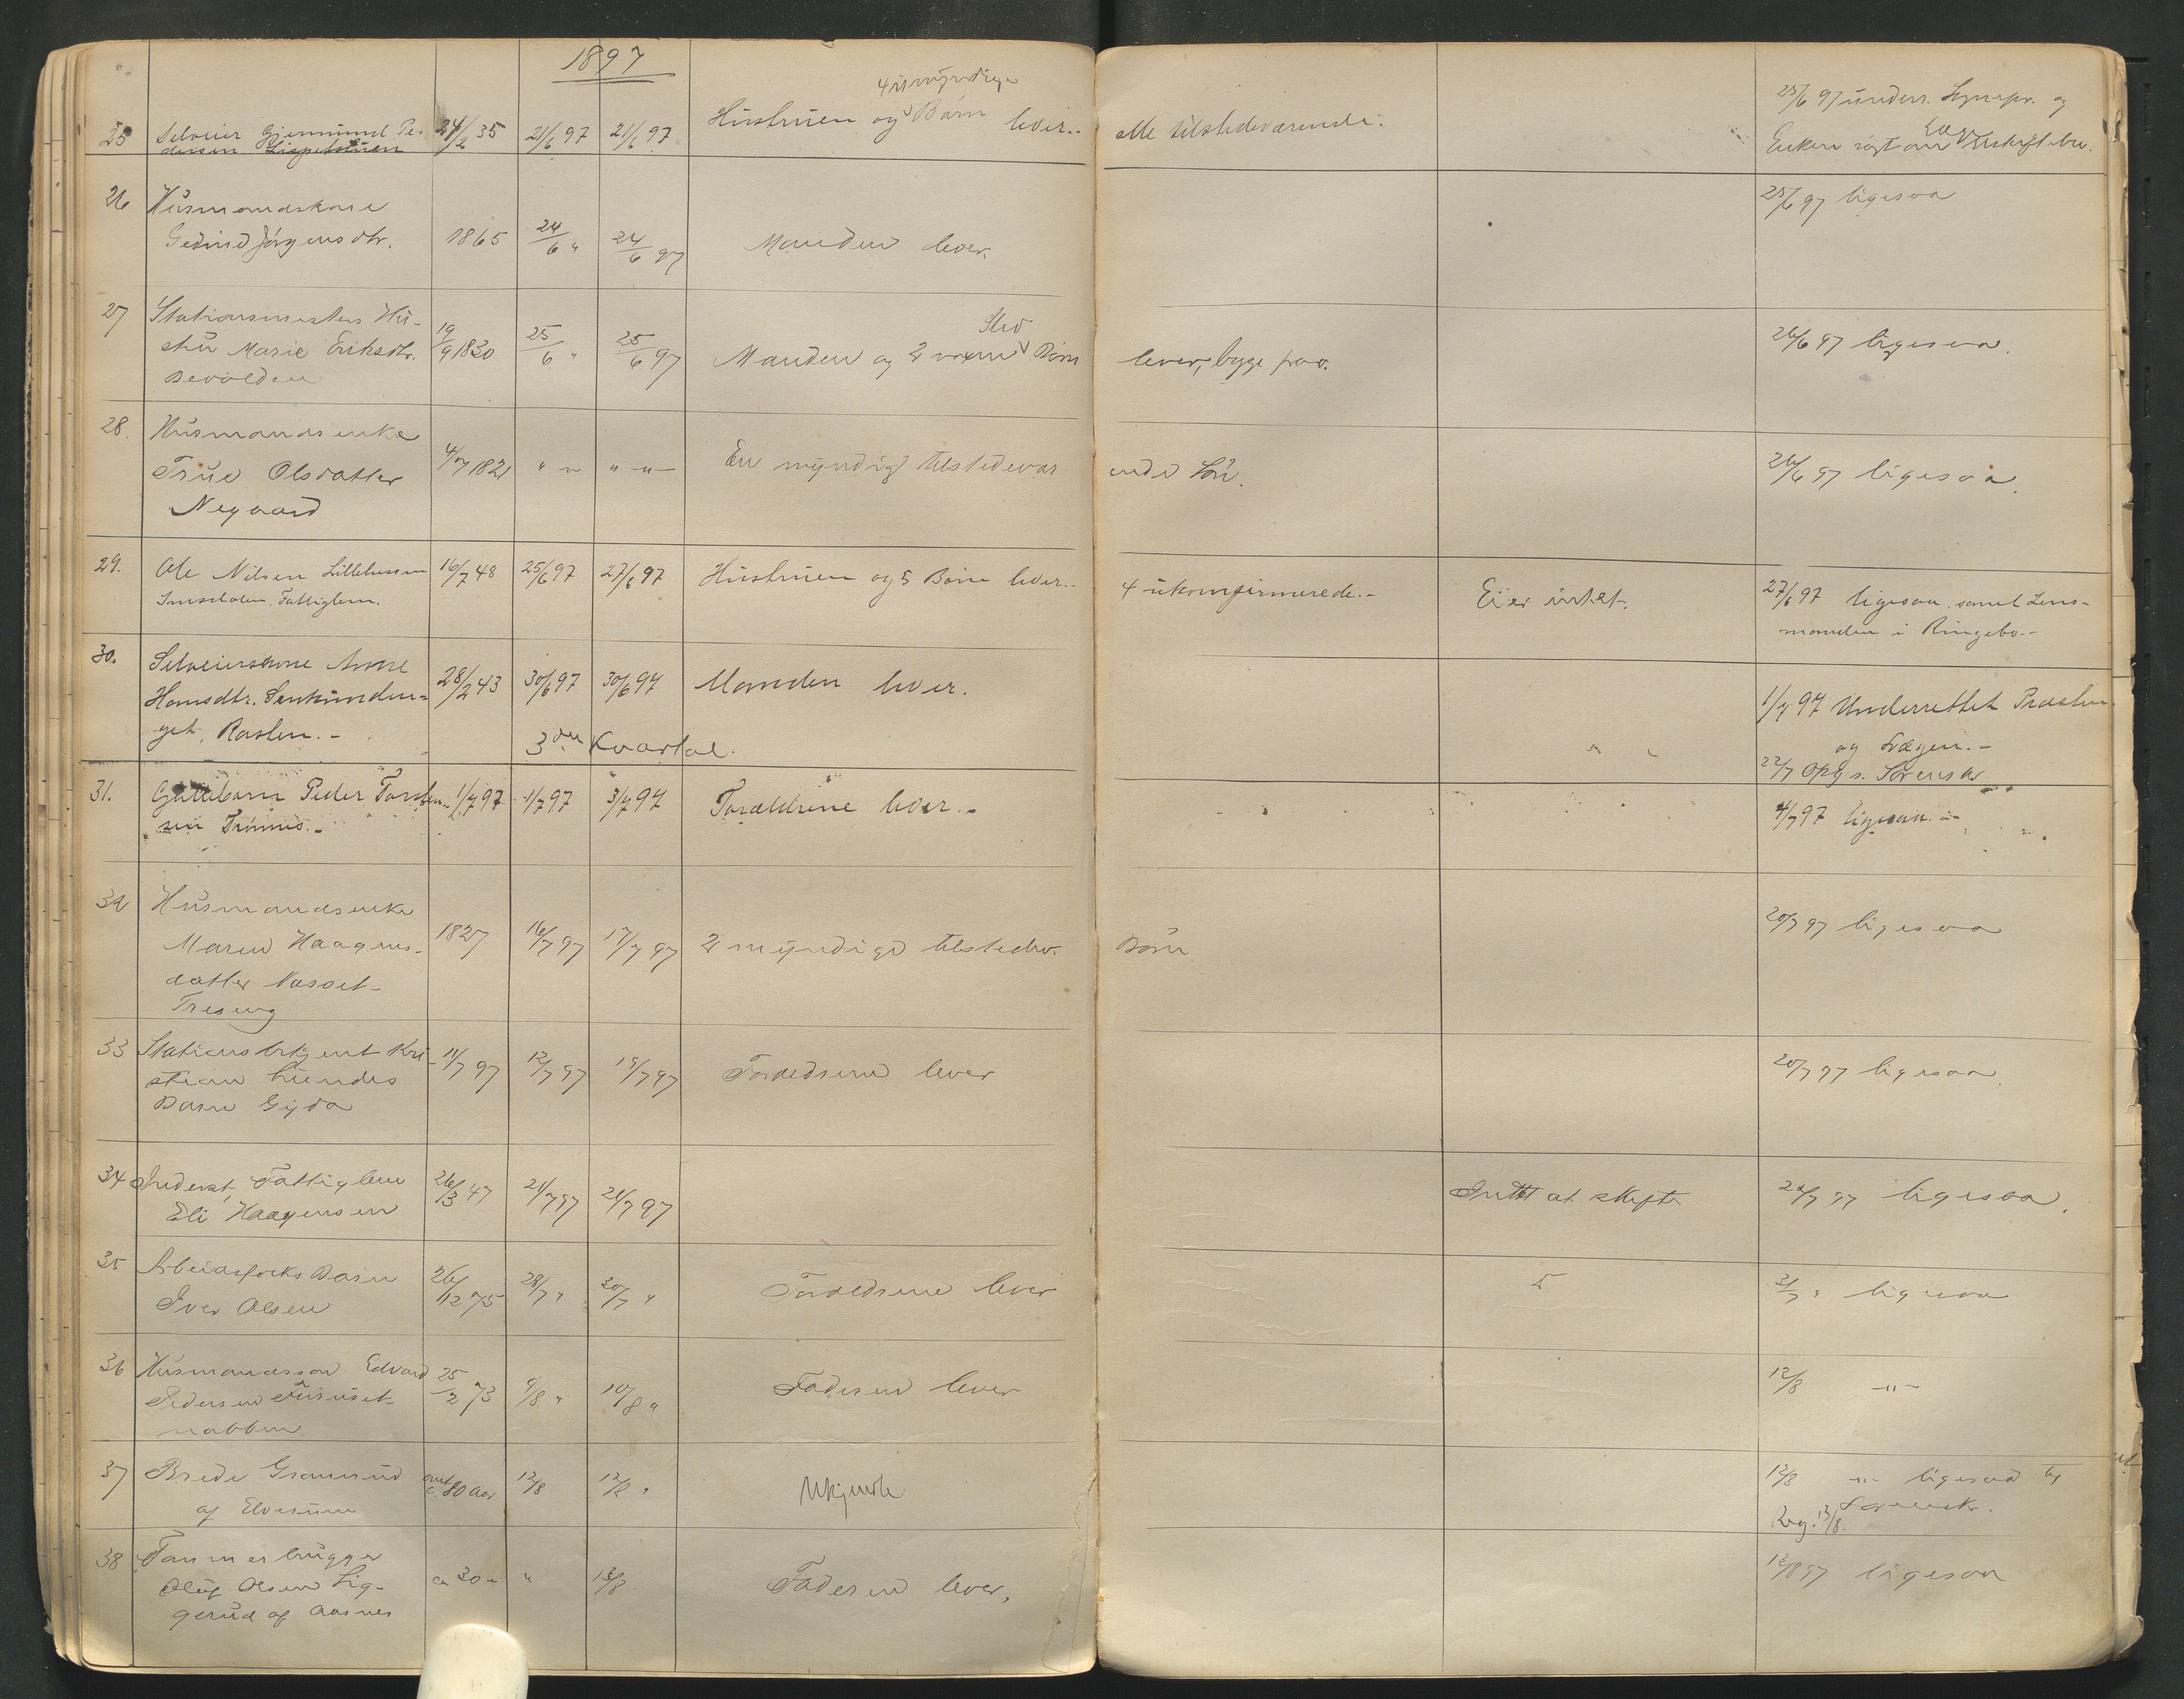 1897
4 umyndige
25 Selveier Gjermund Pe- 24/2 35 21/6 97 21/6 97 Hustruen og Børn lever.- alle tilstedeværende. 25/6 97 underr. Sognepr. og
dersen Enken søgt om
26 Husmandskone 25/6 97 ligesaa
Jørgensdtr. 1865 24/6 " 24/6 97 Manden lever.
27 Stationsmesters Hu- Sted
stru Marie Eriksdtr. 19/9 1830 25/6 " 25/6 97 Manden og 2 voxne Børn lever, begge paa. 26/6 97 ligesaa.
28. Husmandsenke
True Olsdatter 4/7 1821 " — " — " — En myndig tilstedevær ende Søn. 26/6 97 ligesaa.
Negaard
29. Ole Nilsen Lillehussen 16/7 48 25/6 97 27/6 97 Hustruen og 5 Børn lever.- 4 ukonfirmerede.- Eier intet. 27/6 97 ligesaa samt Lens-
Imsdalen. Fattiglem. manden i Ringebo.-
30. Selveierskone Anne
Hansdtr. 28/2 43 30/6 97 30/6 97 Manden lever. 1/7 97 Underrettet Præsten
get, Rasten.- og Lægen.-
3die Kvartal. 22/7 Opg s. Sorenskr
31. Guttebarn Peder Torste- 1/7 97 1/7 97 3/7 97 Forældrene lever.- 4/7 97 ligesaa.-
sen Trønnes.-
32 Husmandsenke
Maren Haagens- 1827 16/7 97 17/7 97 2 myndige tilstedev. Børn 20/7 97 ligesaa
datter Næsset-
Treseng
33 Stationsbetjent Kri- 11/7 97 12/7 97 19/7 97 Forældrene lever 20/7 97 ligesaa.
stian Lundes
Barn Gyda
34 Inderst, Fattiglem 26/3 47 21/7 97 21/7 97 Intet at skifte 22/7 97 ligesaa.
Eli Haagensen
35 Arbeidsfolks Barn 26/12 75 28/7 " 30/7 " Forældrene lever 31/7 " ligesaa
Iver Olsen
36 Husmandssøn Edvard 25/2 73 9/8 " 10/8 " Faderen lever 12/8 — " —
Pedersen Furuset-
nabben
37 Brede Gransrud ca. 80 Aar 12/8 12/8 " Ukjendte 12/8 — " — ligesaa og
af Elverum Sorenskr.
Reg. 13/8.
38 Tømmerbrugger
Oluf Olsen Lig- ca 30 " " 13/8 Faderen lever. 13/8 97 ligesaa
gerud af Aasnes